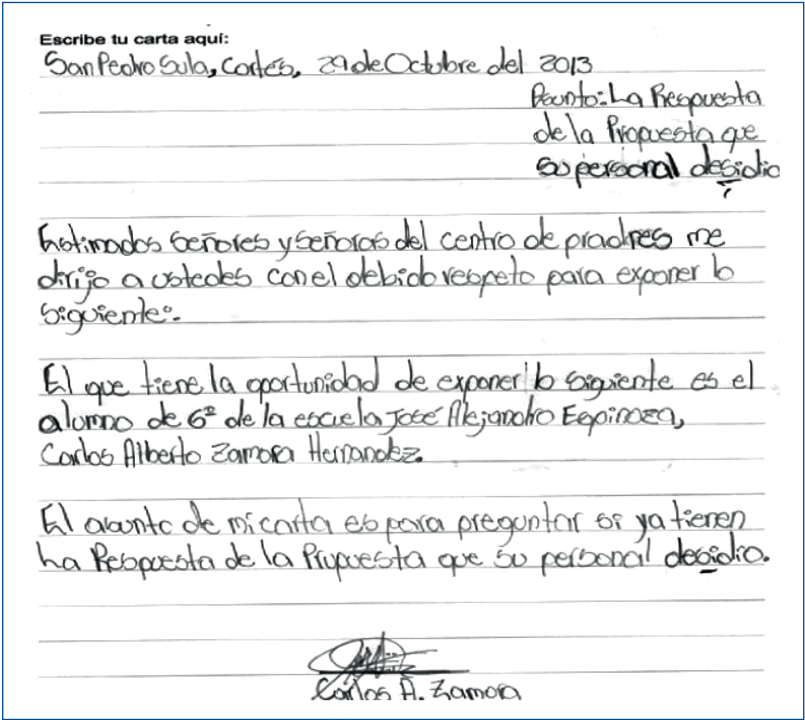 Escribe tu carta aquí:
San Pedro Sula, Cortés, 29 de Octubre del 2013
Asunto: La Respuesta
de la Propuesta que
su personal desidio
?
Estimados señores y señoras del centro de pradres me
dirijo a ustedes con el debido respeto para exponer lo
siguiente:
El que tiene la oportunidad de exponer lo siguiente es el
alumno de 6º de la escuela José Alejandro Espinoza,
Carlos Alberto Zamora Hernandez.
El asunto de mi carta es para preguntar si ya tienen
ha Respuesta de la Prupuesta que su personal desidio.
Carlos A. Zamora